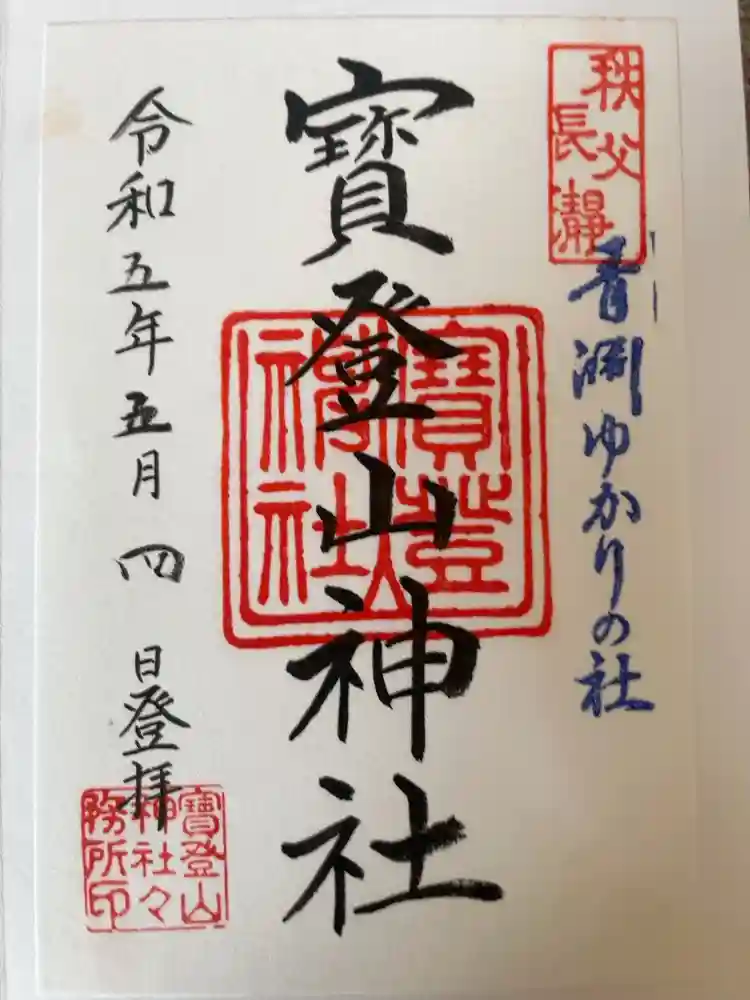 秩父
長瀞
青淵ゆかりの社
寳登山神社
寳登
山
神社
令和五年五月四日登拝
寳登山
神社々
務所印